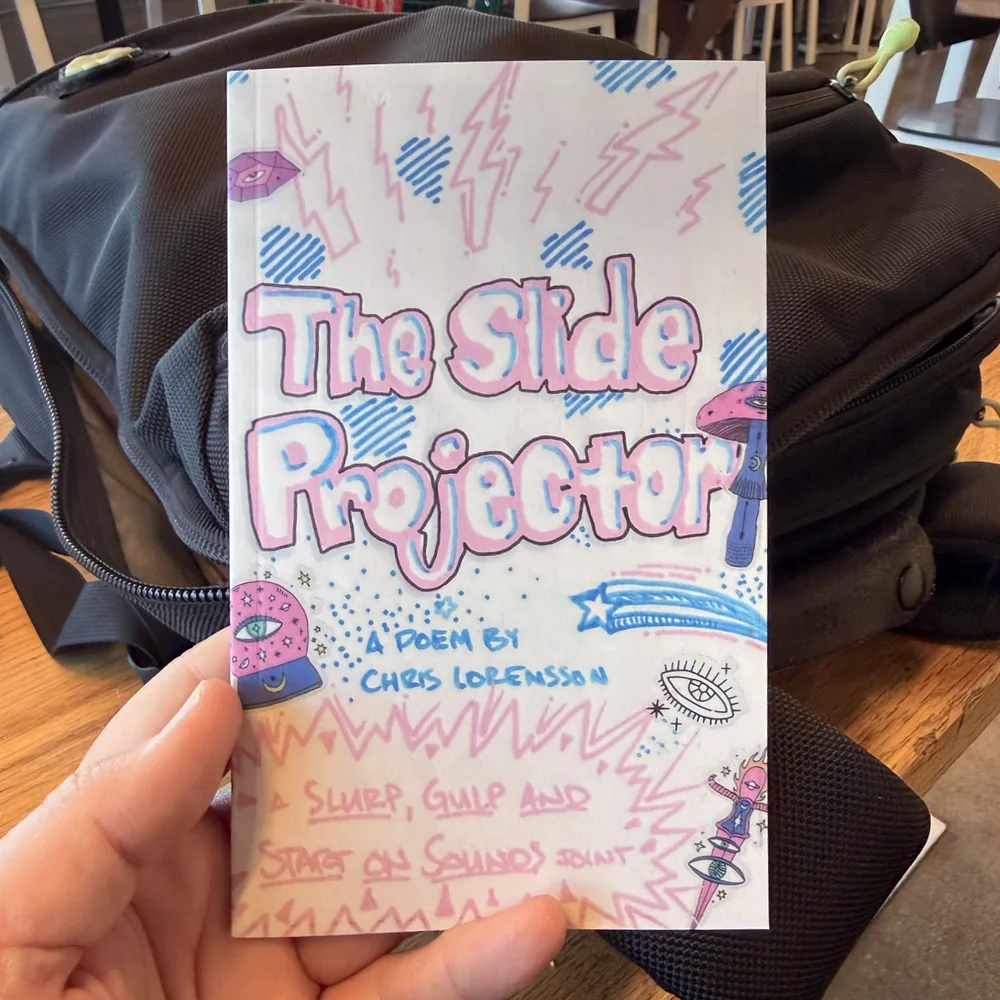 The Slide
Projector
A POEM BY
CHRIS LORENSSON
A SLURP, GULP AND
START ON SOUNDS JOINT